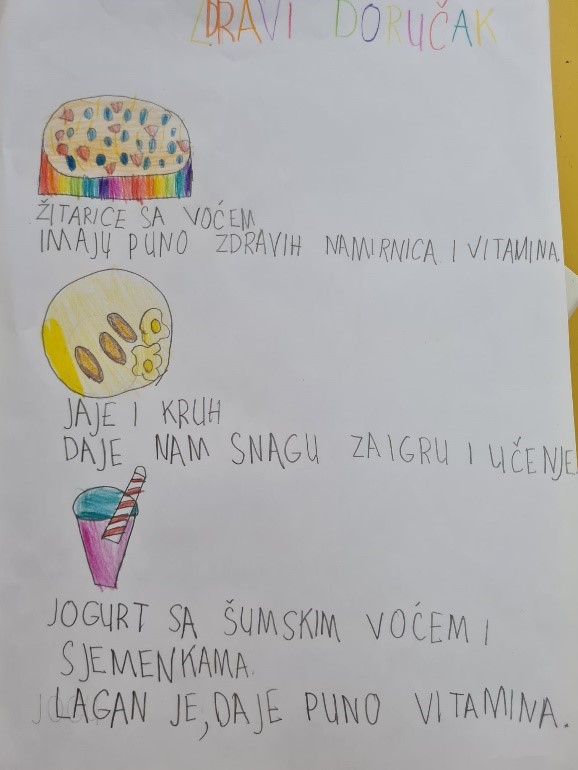 ZDRAVI DORUČAK
ŽITARICE SA VOĆEM
IMAJU PUNO ZDRAVIH NAMIRNICA I VITAMINA.
JAJE I KRUH
DAJE NAM SNAGU ZA IGRU I UČENJE
JOGURT SA ŠUMSKIM VOĆEM I
SJEMENKAMA.
LAGAN JE, DAJE PUNO VITAMINA.